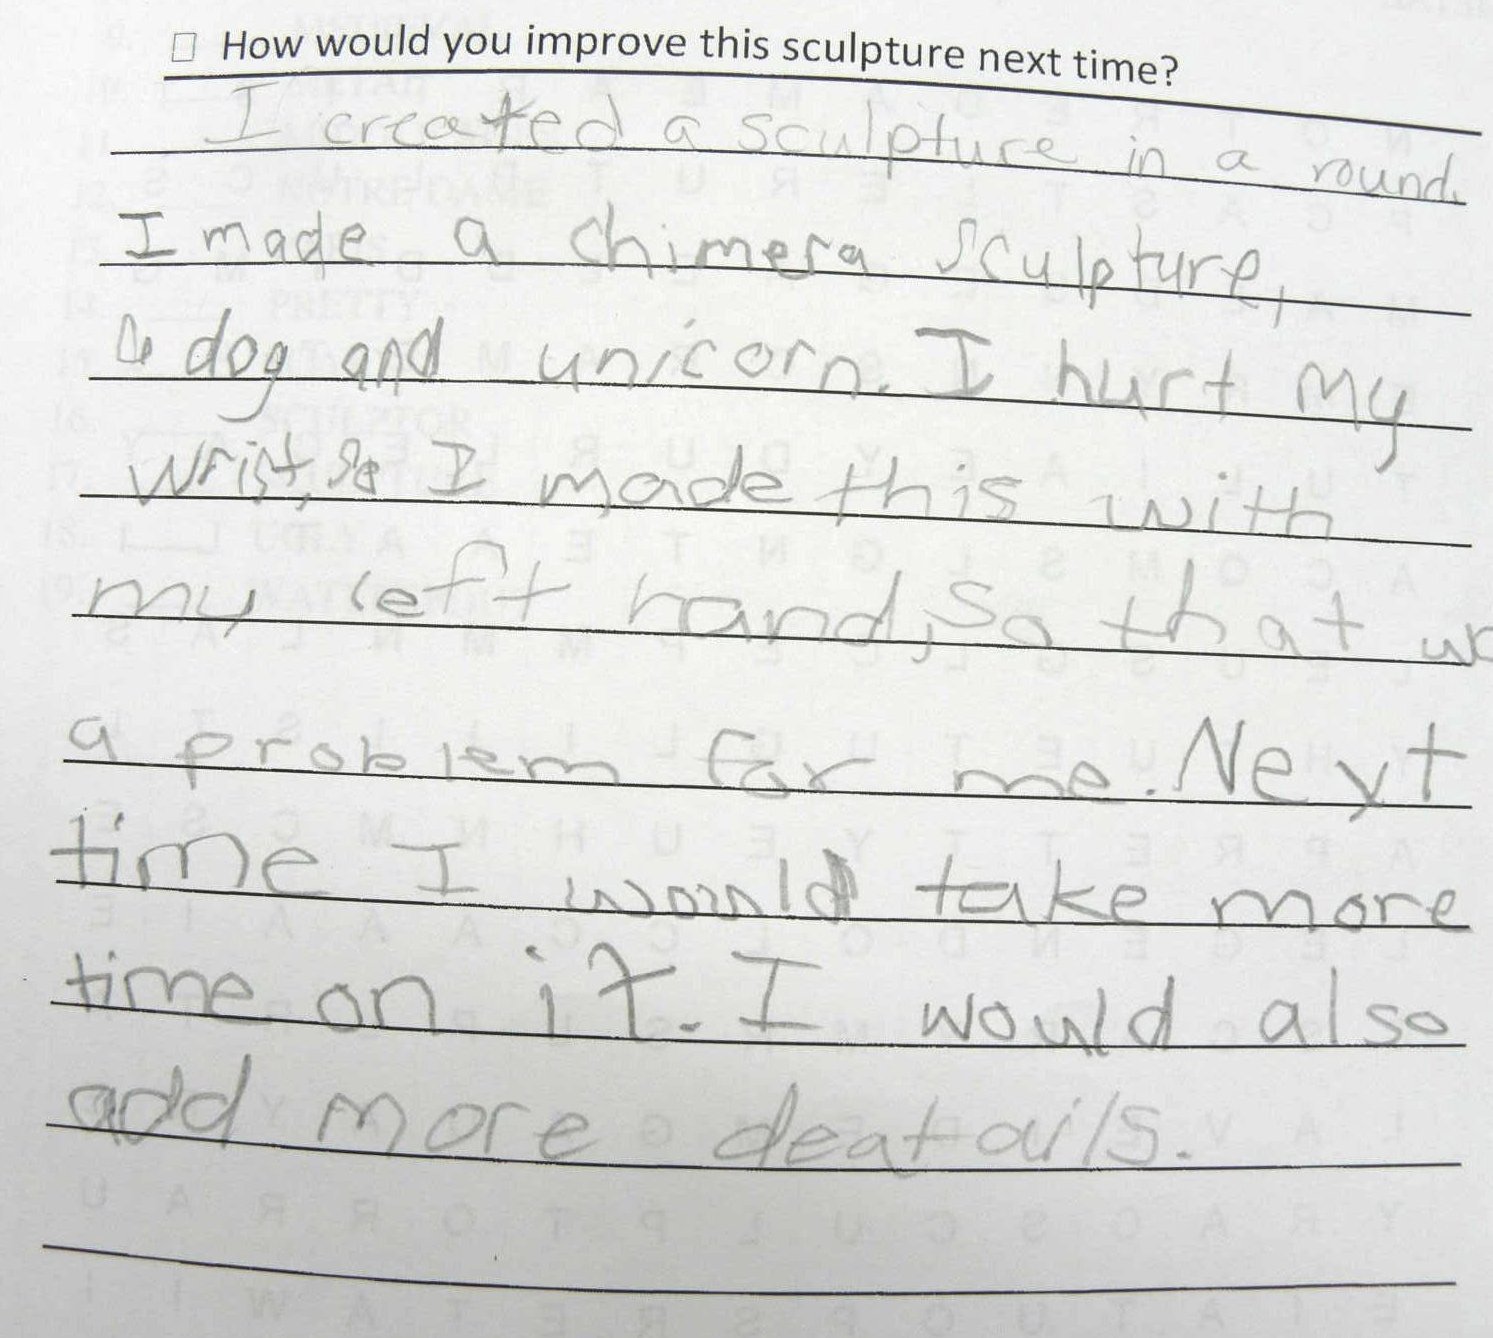 □ How would you improve this sculpture next time?
I created a sculpture in a round.
I made a chimera sculpture,
a dog and unicorn. I hurt my
wrist, so I made this with
my left hand, so that
a problem for me. Next
time I would take more
time on it. I would also
add more deatails.